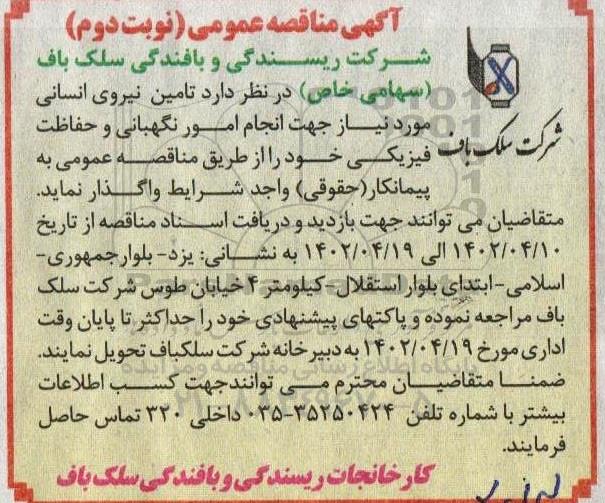 آگهی مناقصه عمومی (نوبت دوم)
شرکت ریسندگی و بافندگی سلک باف
(سهامی خاص) در نظر دارد تامین نیروی انسانی
مورد نیاز جهت انجام امور نگهبانی و حفاظت
شرکت سلک باف
فیزیکی خود را از طریق مناقصه عمومی به
پیمانکار(حقوقی) واجد شرایط واگذار نماید.
متقاضیان می توانند جهت بازدید و دریافت اسناد مناقصه از تاریخ
۱۴۰۲/۰۴/۱۰ الی ۱۴۰۲/۰۴/۱۹ به نشانی: یزد- بلوارجمهوری-
اسلامی-ابتدای بلوار استقلال-کیلومتر ۴ خیابان طوس شرکت سلک
باف مراجعه نموده و پاکتهای پیشنهادی خود را حداکثر تا پایان وقت
اداری مورخ ۱۴۰۲/۰۴/۱۹ به دبیرخانه شرکت سلکباف تحویل نمایند.
ضمنا متقاضیان محترم می توانندجهت کسب اطلاعات
بیشتر با شماره تلفن ۳۵۲۵۰۴۲۴-۰۳۵ داخلی ۳۲۰ تماس حاصل
فرمایند.
کارخانجات ریسندگی و بافندگی سلک باف